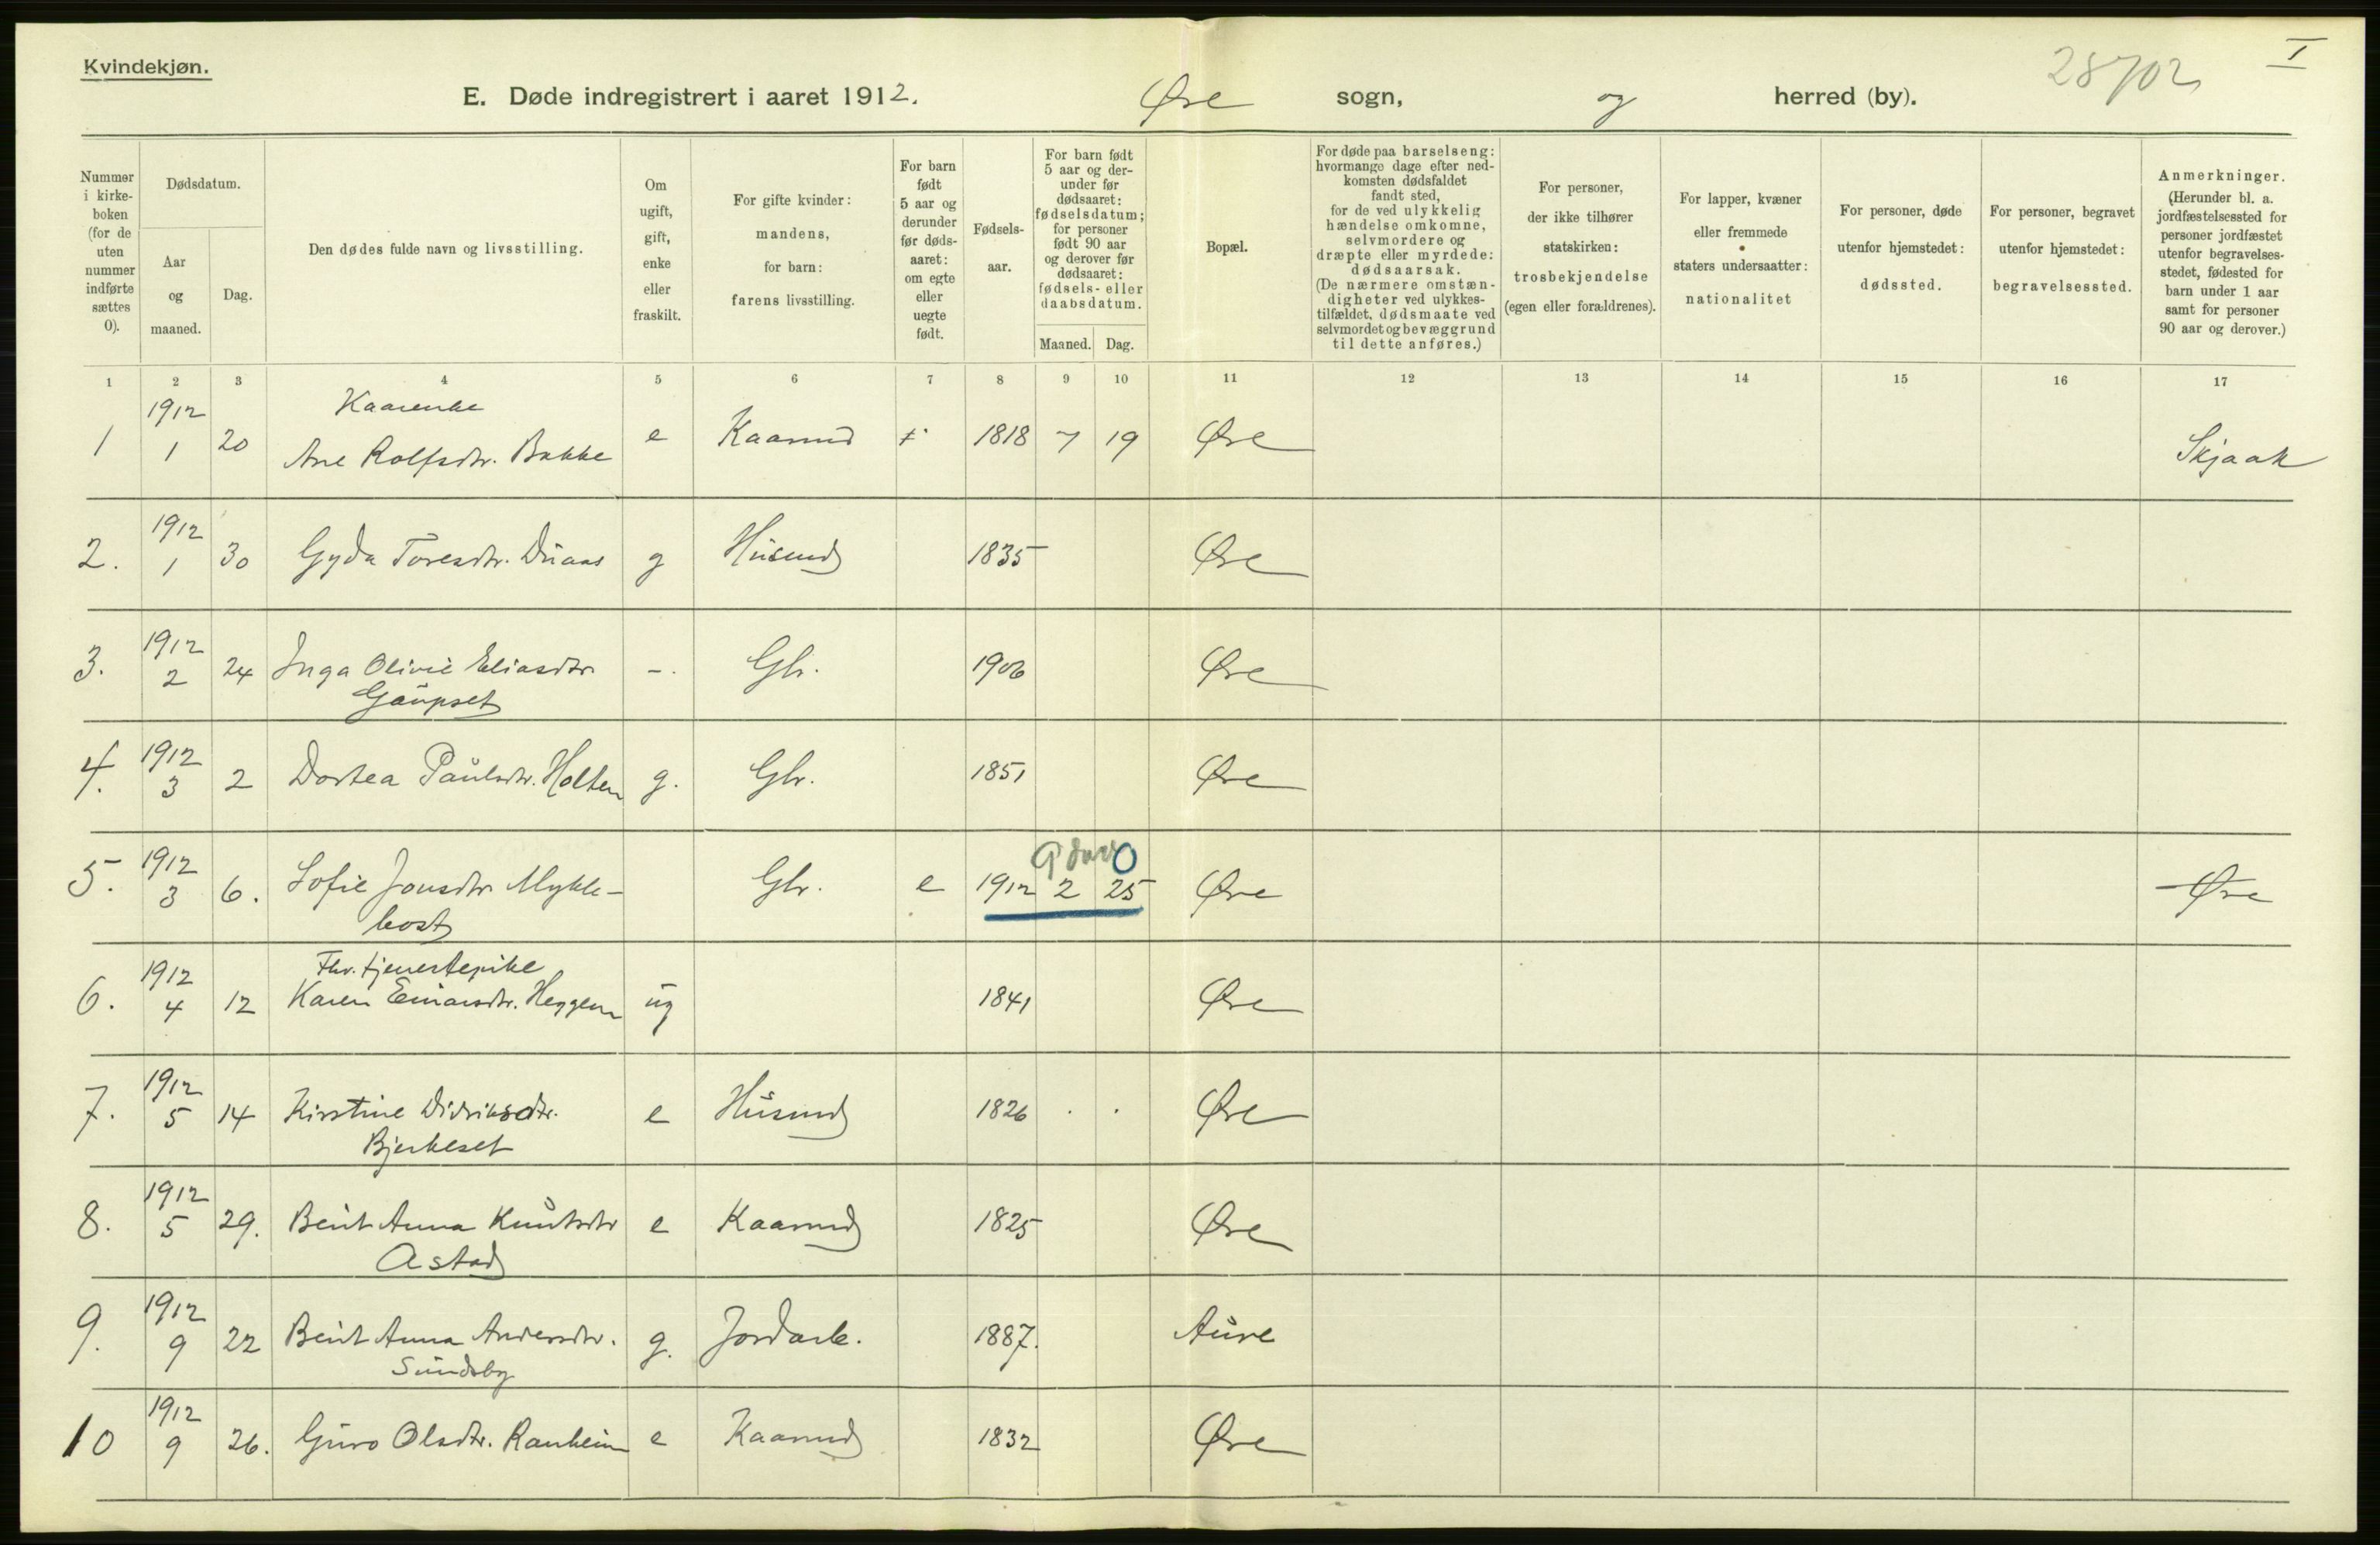 Kvindekjøn.
I
28702
E. Døde indregistrert i aaret 1912. Øre sogn, og herred (by).
Nummer i kirke-boken (for de uten nummer indførte sættes 0).
Dødsdatum.
Aar og maaned.
Dag.
Den dødes fulde navn og livsstilling.
Om ugift, gift, enke eller fraskilt.
For gifte kvinder: mandens, for barn: farens livsstilling.
For barn født 5 aar og derunder før døds-aaret: om egte eller uegte født.
Fødsels-aar.
For barn født 5 aar og der-under før dødsaaret: fødselsdatum; for personer født 90 aar og derover før dødsaaret: fødsels- eller daabsdatum.
Maaned. Dag.
Bopæl.
For døde paa barselseng: hvormange dage efter ned-komsten dødsfaldet fandt sted, for de ved ulykkelig hændelse omkomne, selvmordere og dræpte eller myrdede: dødsaarsak. (De nærmere omstæn-digheter ved ulykkes-tilfældet, dødsmaate ved selvmordet og bevæggrund til dette anføres.)
For personer, der ikke tilhører statskirken: trosbekjendelse (egen eller forældrenes).
For lapper, kvæner eller fremmede staters undersaatter: nationalitet
For personer, døde utenfor hjemstedet: dødssted.
For personer, begravet utenfor hjemstedet: begravelsessted.
Anmerkninger. (Herunder bl. a. jordfæstelsessted for personer jordfæstet utenfor begravelses-stedet, fødested for barn under 1 aar samt for personer 90 aar og derover.)
1 2 3 4 5 6 7 8 9 10 11 12 13 14 15 16 17
1912 Kaarenke
1 1 20 Ane Rolfsdtr. Bakke e Kaarmd 1818 7 19 Øre Skjaak
1912
2. 1 30 Gyda Toresdtr. Duaas g Husmd 1835 Øre
1912
3. 2 24 Inga Olivie Eliasdtr -. Gbr. 1906 Øre
Gaupset
1912
4. 3 2 Dortea Paulsdtr. Holten g. Gbr. 1851 Øre
1912 0
5. 3 6. Sofie Jonsdtr Mykle- Gbr. e 1912 2 25 Øre Øre
bost
1912 Fhv. tjenestepike
6. 4 12 Karen Einarsdtr. Heggem ug 1841 Øre
1912
7. 5 14 Kirstine Didriksdtr. e Husmd 1826 Øre
Bjerkeset
1912
8. 5 29. Berit Anna Knutsdtr e Kaarmd 1825 Øre
Astad
1912
9. 9 22 Berit Anna Andersdtr. g. Jordarb. 1887. Aure
Sundsby
1912
10 9 26. Guro Olsdtr. Ranheim e Kaarmd 1832 Øre